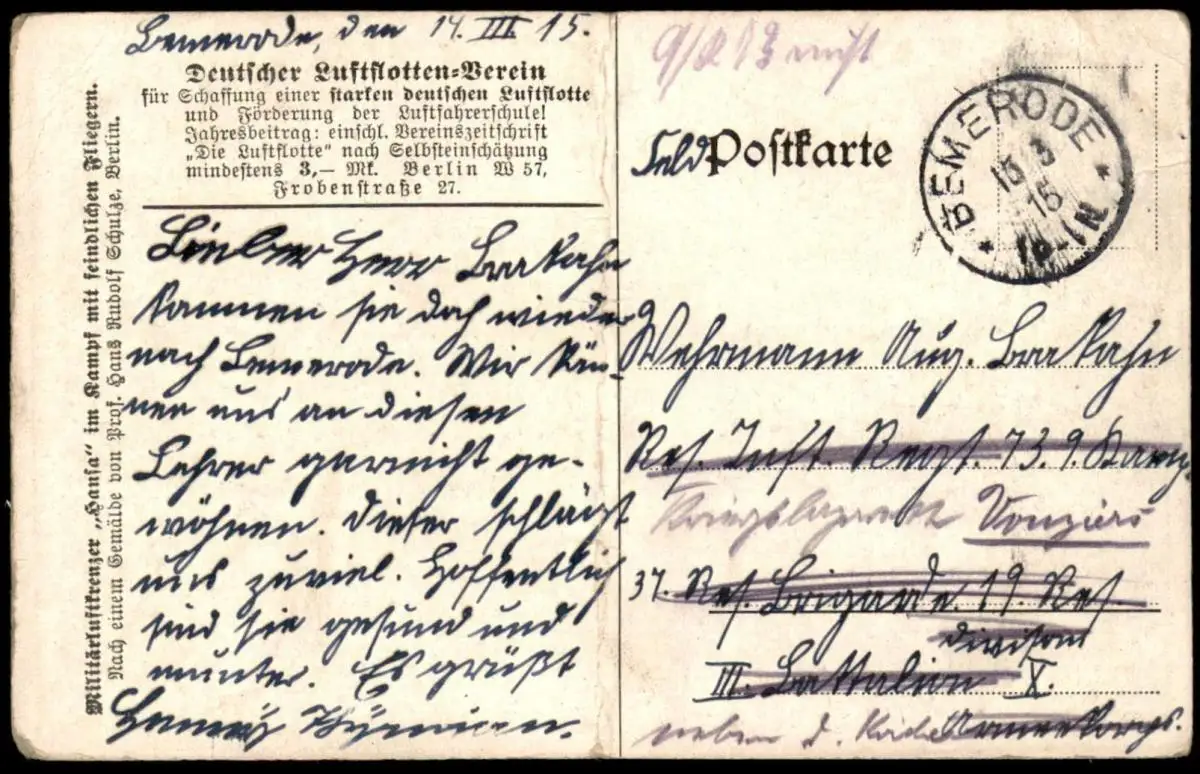 Bemerode, den 14. III. 15.
Deutscher Luftflotten-Verein
für Schaffung einer starken deutschen Luftflotte
und Förderung der Luftfahrerschule!
Jahresbeitrag: einschl. Vereinszeitschrift
„Die Luftflotte“ nach Selbsteinschätzung
mindestens 3,— Mk. Berlin W 57,
Frobenstraße 27.
Lieber Herr Brakahn
kammen sie doch wieder
nach Bemerode. Wir kön-
nen uns an diesen
Lehrer garnicht ge-
wöhnen. dieser schlägt
uns zuviel. Hoffentlich
sind sie gesund und
munter. Es grüßt
Militärluftkreuzer „Hansa“ im Kampf mit feindlichen Fliegern.
Nach einem Gemälde von Prof. Hans Rudolf Schulze, Berlin.
nicht
Feld Postkarte
BEMERODE
Wehrmann Aug. Brakahn
Res. Inft. Regt. 73. 9. Komp.
Kriegslazarett Vouziers
37. Res. Brigade 19. Res.
division
III. Battalion X.
neben d. Armeekorps.